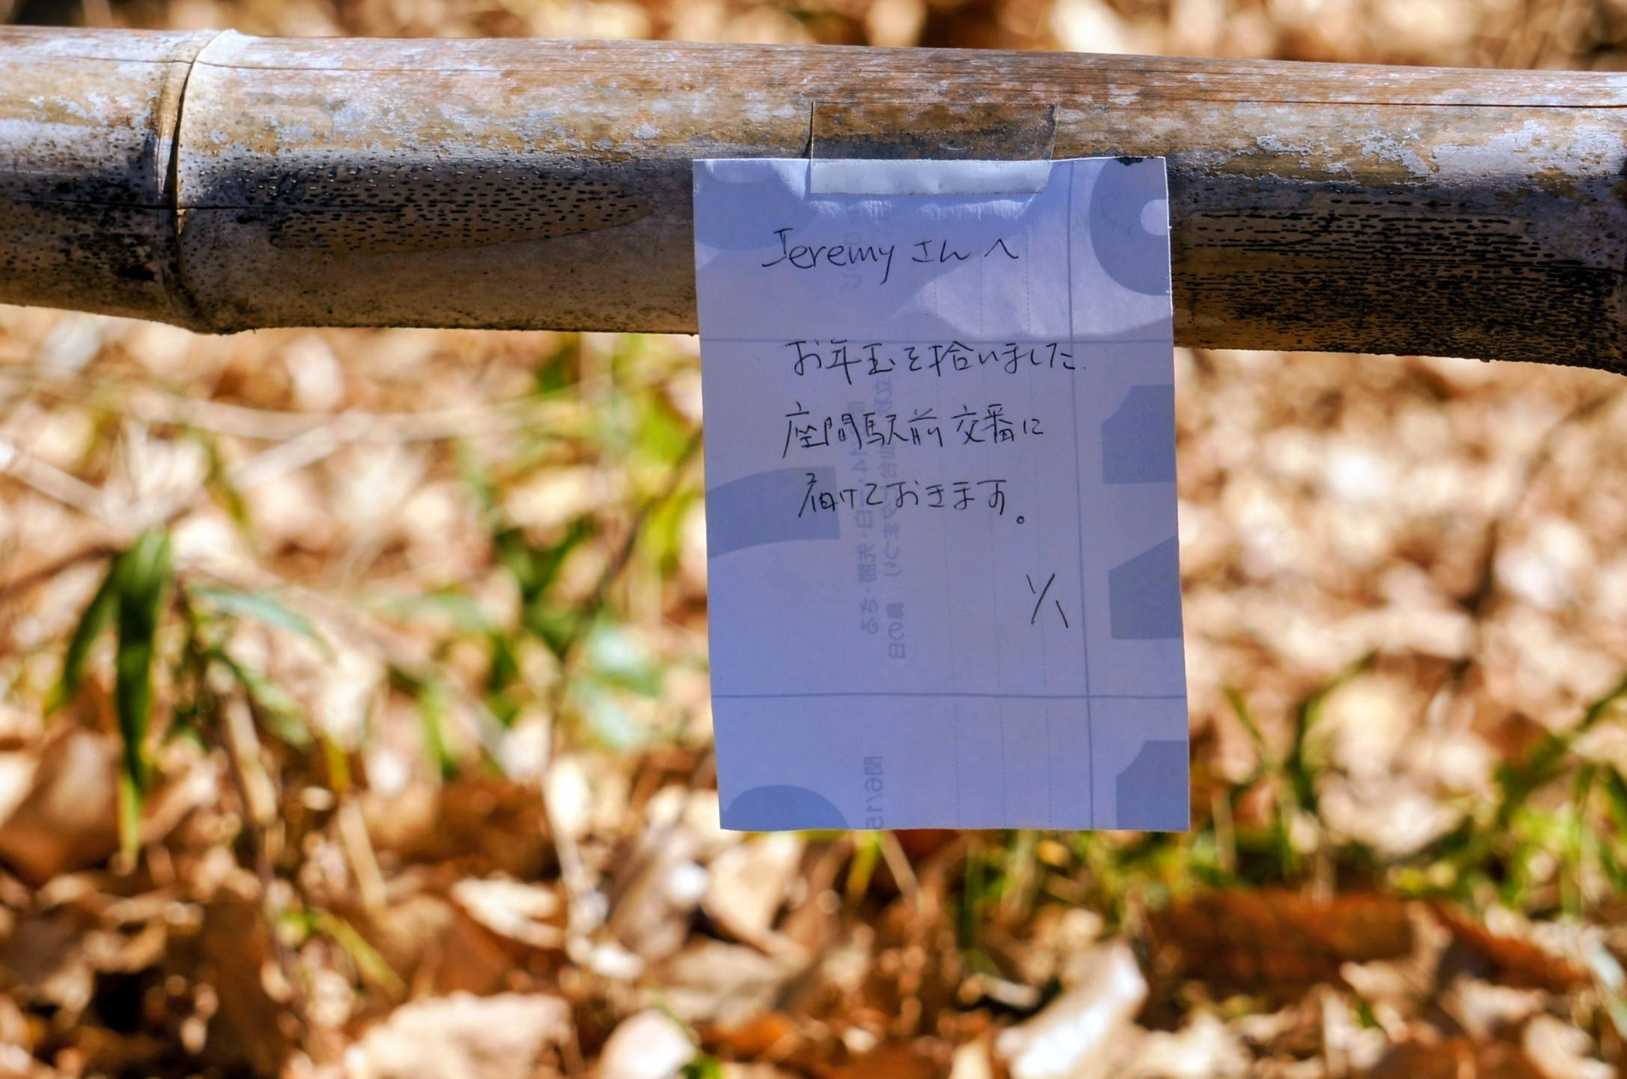 Jeremyさんへ
お年玉を拾いました.
座間駅前交番に
届けておきます。
1/1